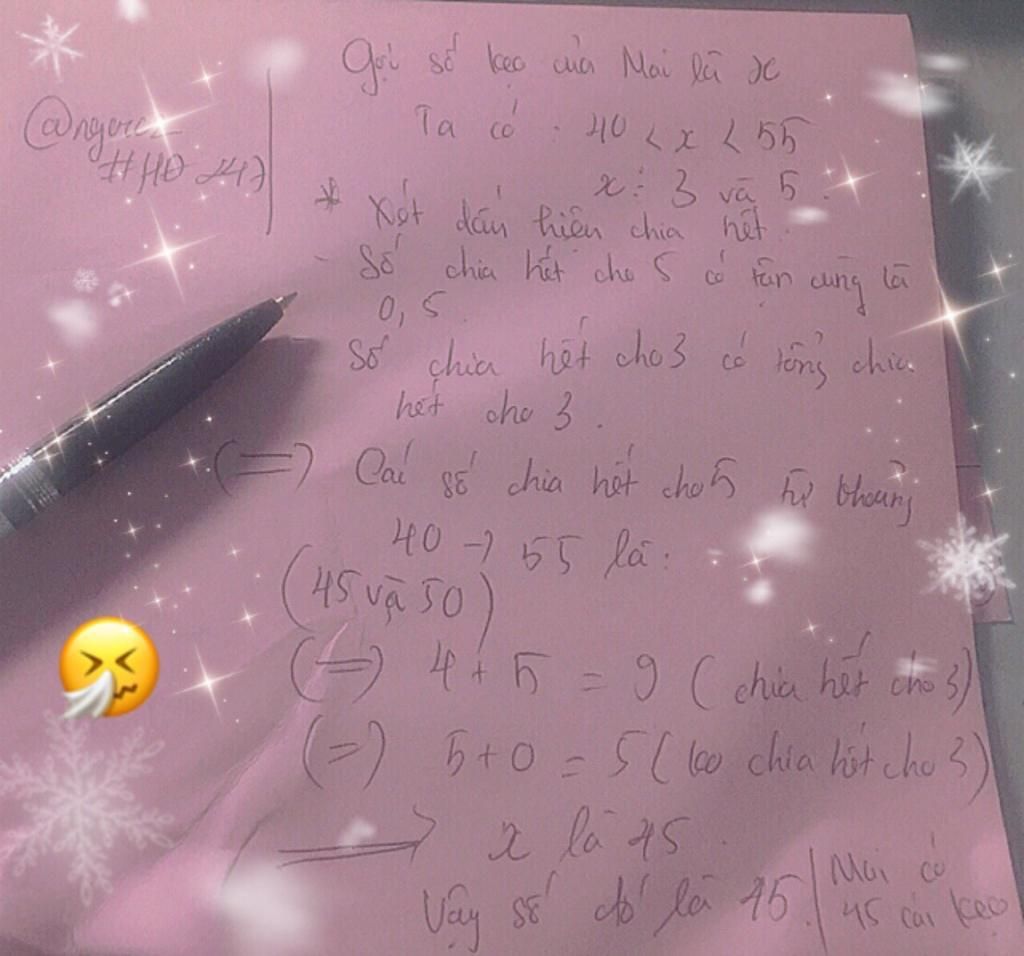 Gọi số kẹo của Mai là x
Ta có : 40 < x < 55
x ⋮ 3 và 5.
* Xét dấu hiệu chia hết.
- Số chia hết cho 5 có tận cùng là
0, 5.
Số chia hết cho 3 có tổng chia
hết cho 3.
(=) Các số chia hết cho 5 từ khoảng
40 -> 55 là:
(45 và 50)
(=) 4 + 5 = 9 (chia hết cho 3)
(=) 5 + 0 = 5 (ko chia hết cho 3)
→ x là 45.
Vậy số đó là 45.
Mai có
45 cái kẹo